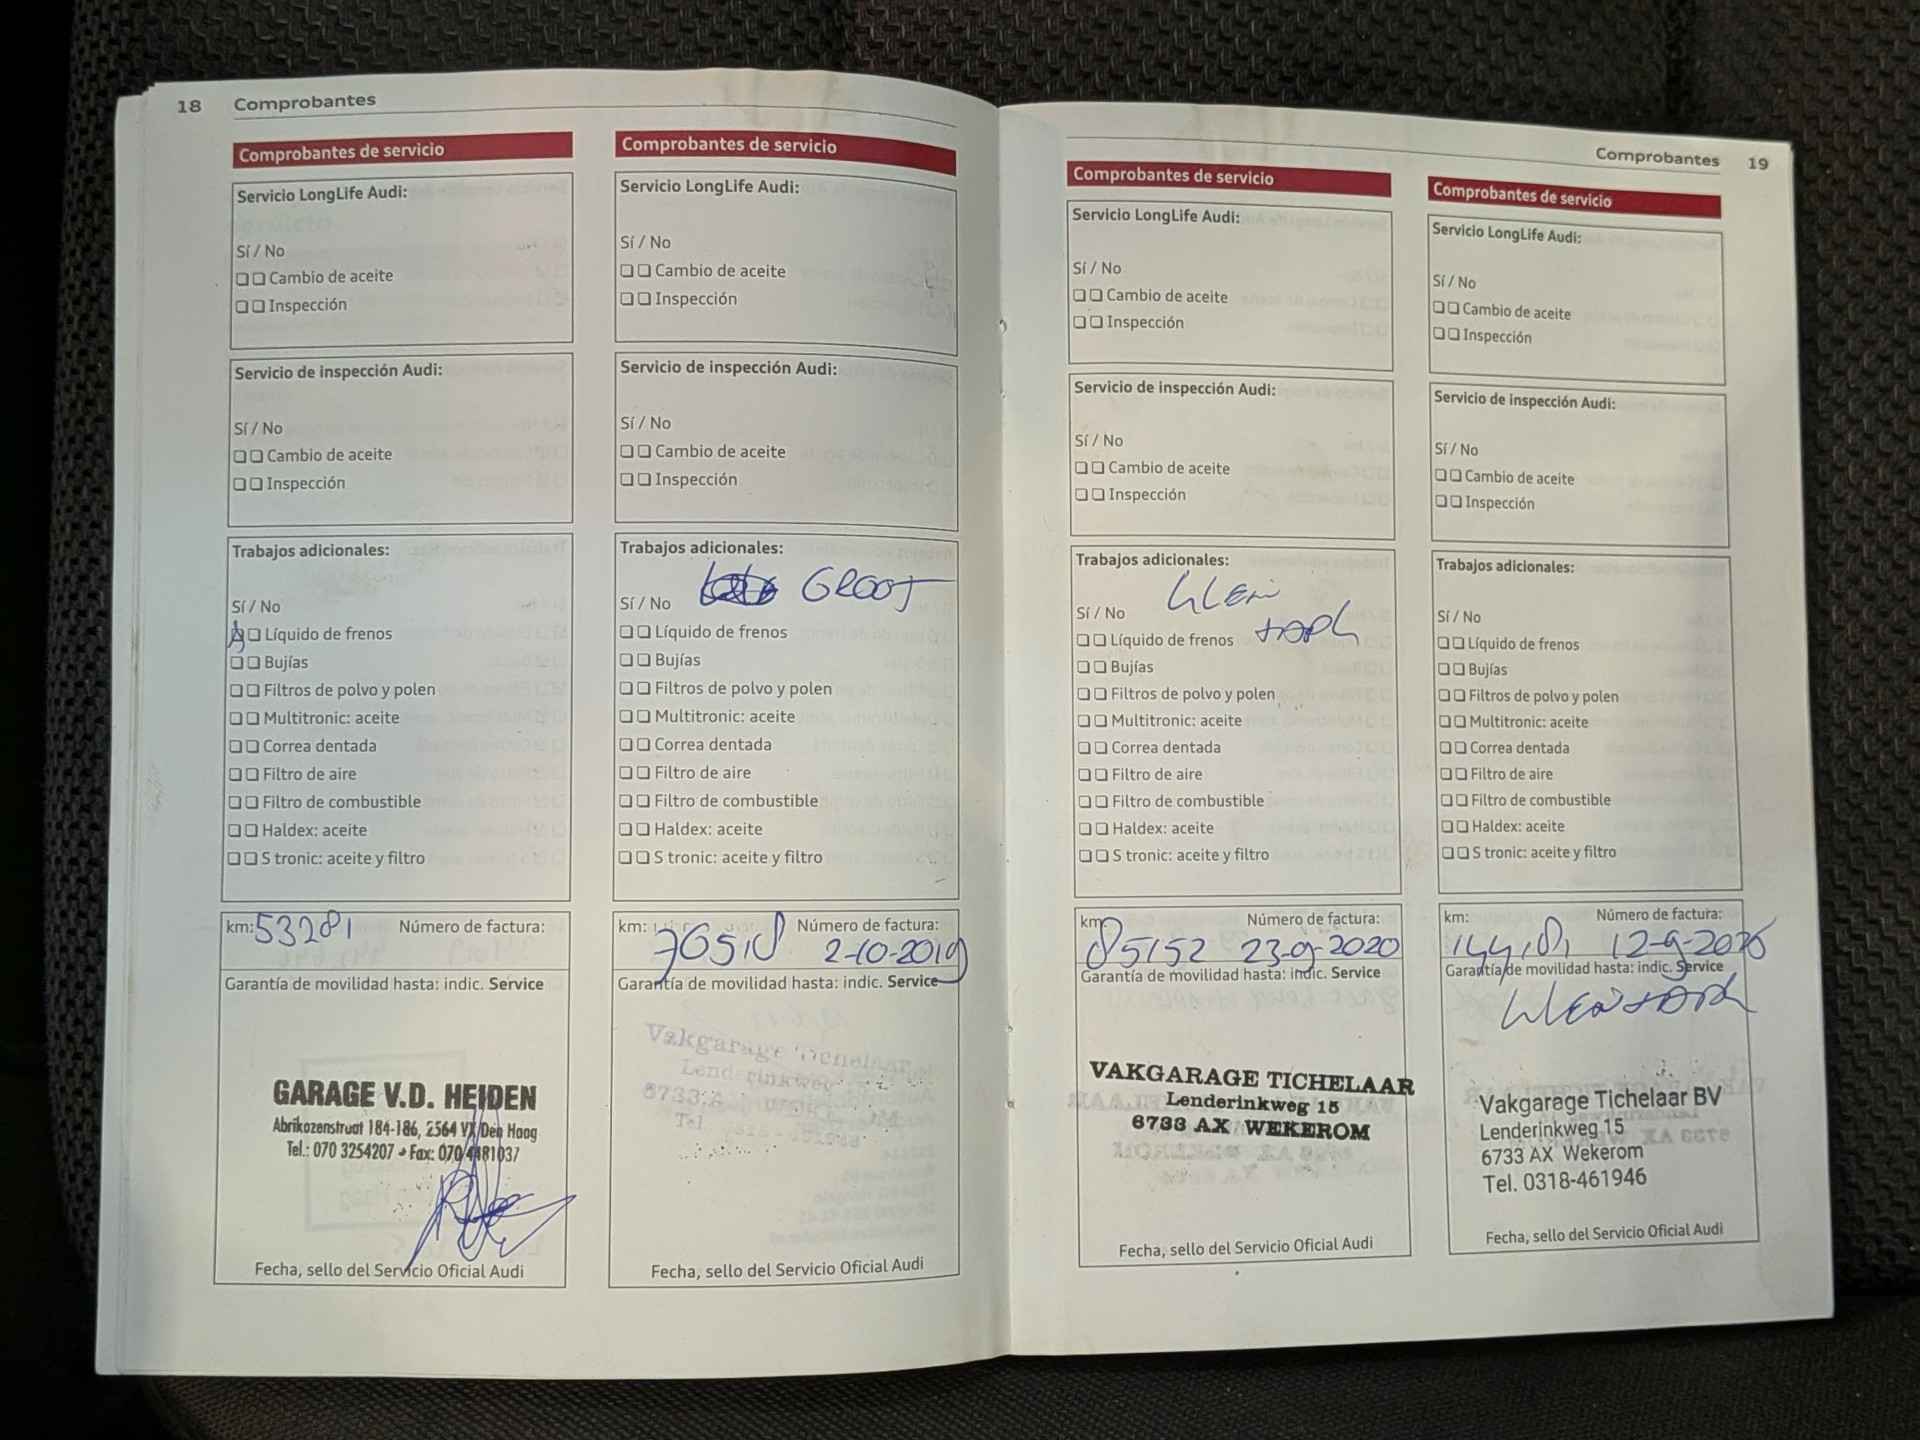 18 Comprobantes
Comprobantes de servicio
Servicio LongLife Audi:
Sí / No
Cambio de aceite
Inspección
Servicio de inspección Audi:
Sí / No
Cambio de aceite
Inspección
Trabajos adicionales:
Sí / No
Líquido de frenos
Bujías
Filtros de polvo y polen
Multitronic: aceite
Correa dentada
Filtro de aire
Filtro de combustible
Haldex: aceite
S tronic: aceite y filtro
km: 53281 Número de factura:
Garantía de movilidad hasta: indic. Service
GARAGE V.D. HEIDEN
Abrikozenstraat 184-186, 2564 VX Den Haag
Tel.: 070 3254207 • Fax: 070 4481037
Fecha, sello del Servicio Oficial Audi
Comprobantes de servicio
Servicio LongLife Audi:
Sí / No
Cambio de aceite
Inspección
Servicio de inspección Audi:
Sí / No
Cambio de aceite
Inspección
Trabajos adicionales:
GROOT
Sí / No
Líquido de frenos
Bujías
Filtros de polvo y polen
Multitronic: aceite
Correa dentada
Filtro de aire
Filtro de combustible
Haldex: aceite
S tronic: aceite y filtro
km: Número de factura:
2-10-2019
Garantía de movilidad hasta: indic. Service
Vakgarage Tichelaar
Lenderinkweg
6733 A
Tel
Fecha, sello del Servicio Oficial Audi
Comprobantes 19
Comprobantes de servicio
Servicio LongLife Audi:
Sí / No
Cambio de aceite
Inspección
Servicio de inspección Audi:
Sí / No
Cambio de aceite
Inspección
Trabajos adicionales:
KLEIN
Sí / No
Líquido de frenos
Bujías
Filtros de polvo y polen
Multitronic: aceite
Correa dentada
Filtro de aire
Filtro de combustible
Haldex: aceite
S tronic: aceite y filtro
km: Número de factura:
85152 23-9-2020
Garantía de movilidad hasta: indic. Service
VAKGARAGE TICHELAAR
Lenderinkweg 15
6733 AX WEKEROM
Fecha, sello del Servicio Oficial Audi
Comprobantes de servicio
Servicio LongLife Audi:
Sí / No
Cambio de aceite
Inspección
Servicio de inspección Audi:
Sí / No
Cambio de aceite
Inspección
Trabajos adicionales:
Sí / No
Líquido de frenos
Bujías
Filtros de polvo y polen
Multitronic: aceite
Correa dentada
Filtro de aire
Filtro de combustible
Haldex: aceite
S tronic: aceite y filtro
km: Número de factura:
Garantía de movilidad hasta: indic. Service
Vakgarage Tichelaar BV
Lenderinkweg 15
6733 AX Wekerom
Tel. 0318-461946
Fecha, sello del Servicio Oficial Audi